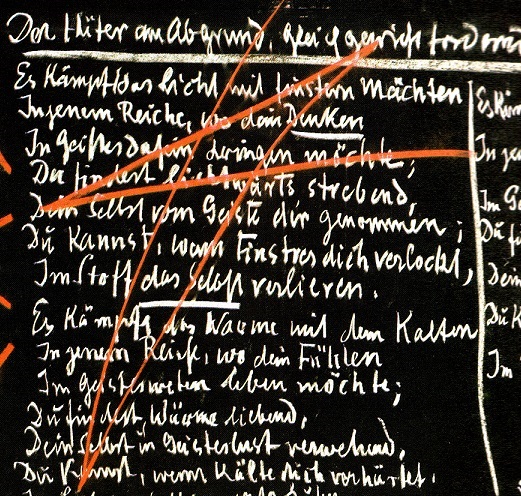 Der Hüter am Abgrund, gleichgewicht fordernd
Es kämpft das Licht mit finstern Mächten
In jenem Reiche, wo dein Denken
In Geistesdasein dringen möchte;
Du findest lichtwärts strebend,
Dein Selbst vom Geiste dir genommen;
Du kannst, wenn Finstres dich verlockt,
Im Stoff das Selbst verlieren.
Es kämpft das Warme mit dem Kalten
In jenem Reiche, wo dein Fühlen
Im Geistesweben leben möchte;
Du findest, Wärme liebend,
Dein Selbst in Geisteslust verwehend,
Du kannst, wenn Kälte dich verhärtet,
Es käm
In je
Im Ge
Du fi
Dein
Du k
Im